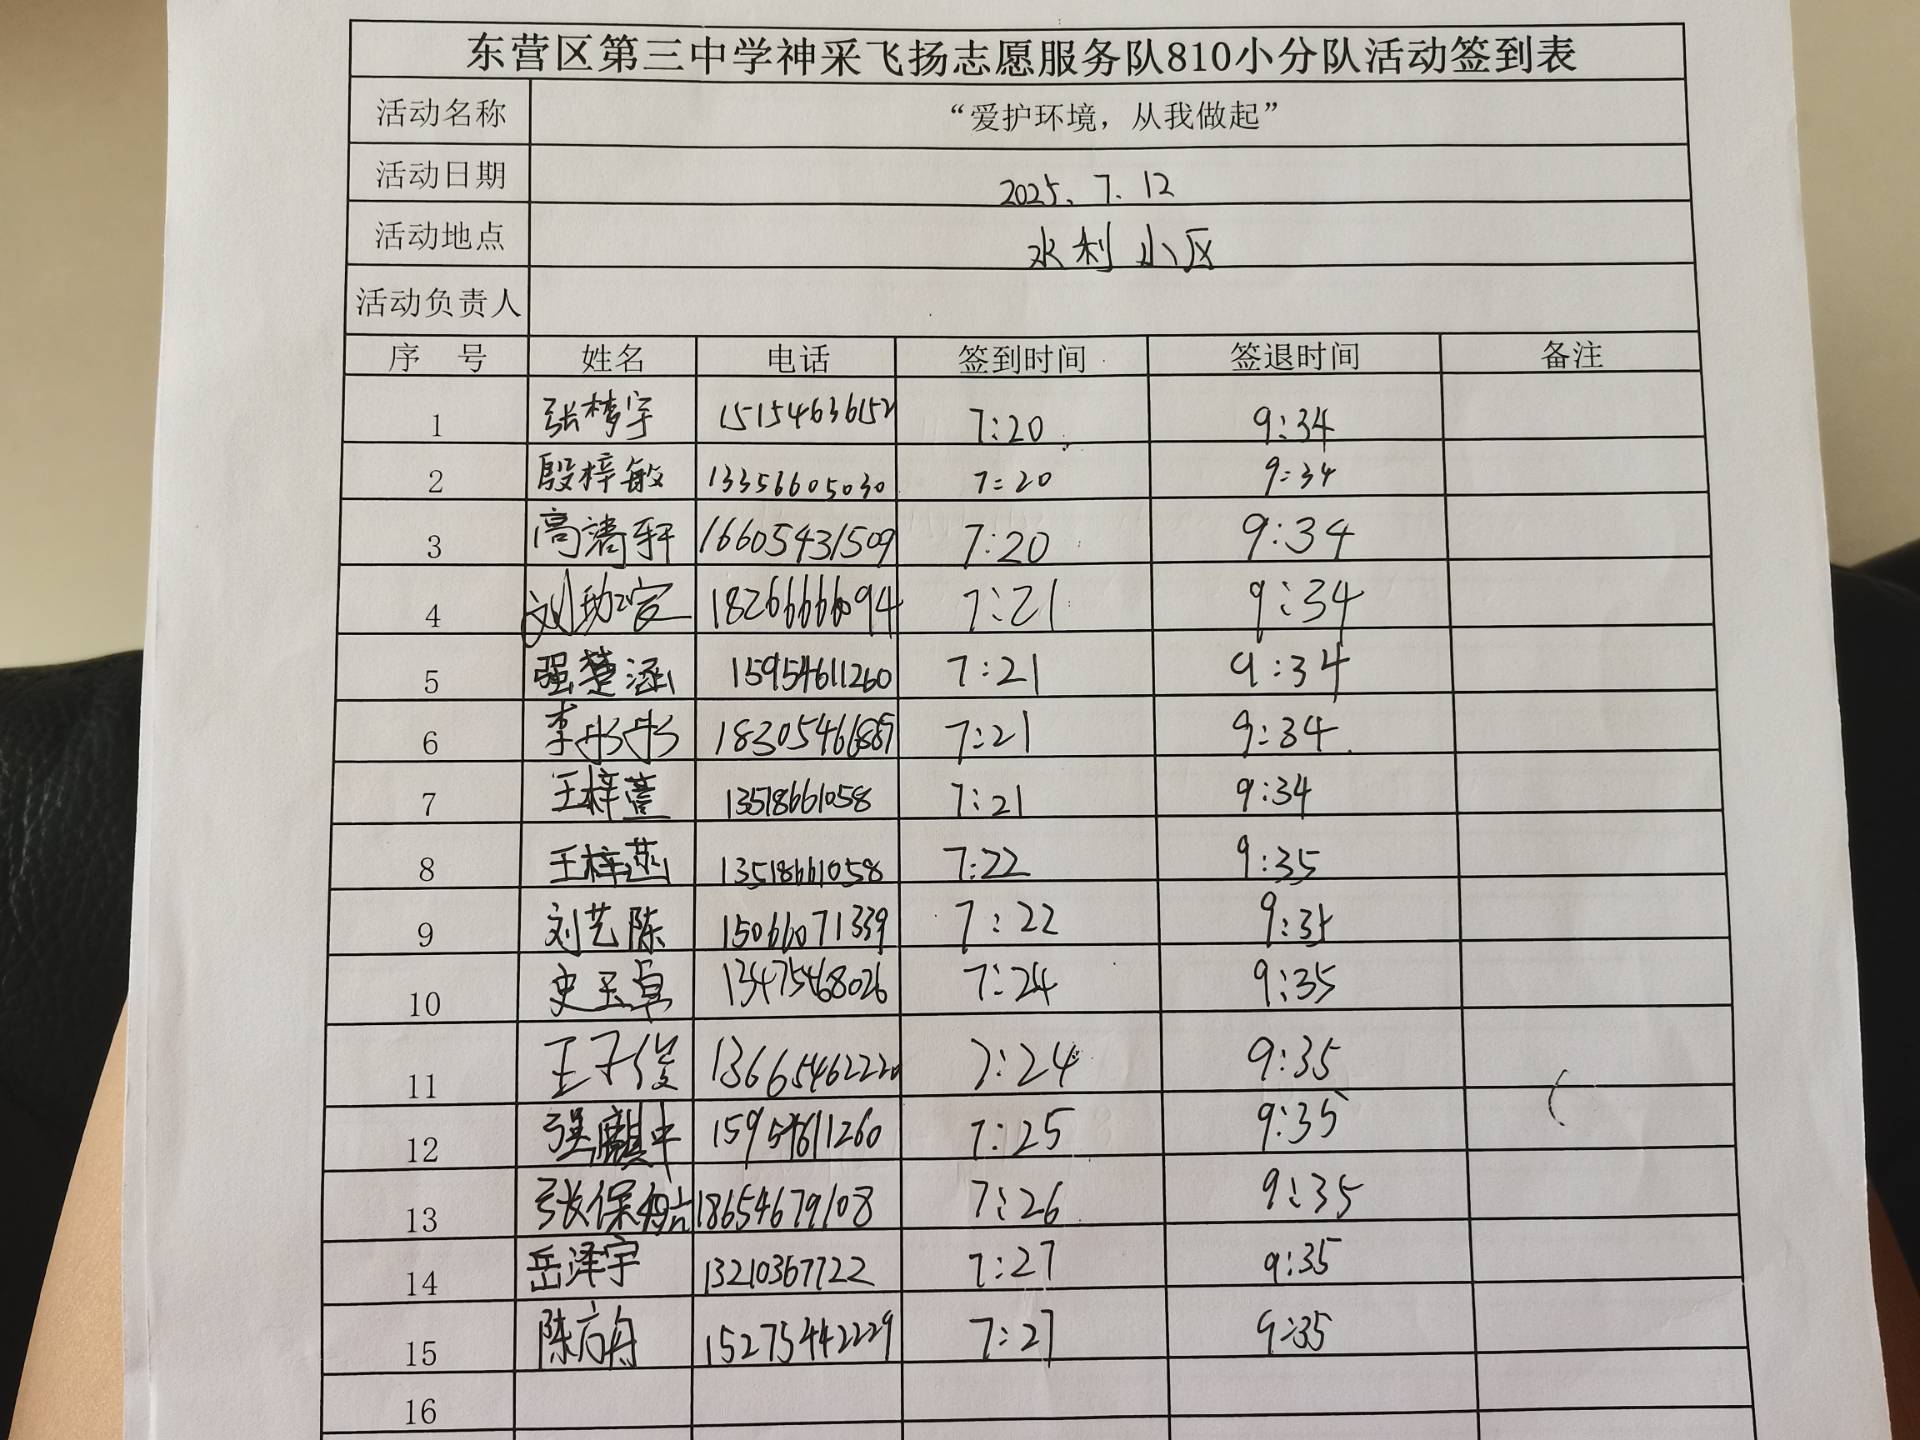 东营区第三中学神采飞扬志愿服务队810小分队活动签到表
活动名称 “爱护环境，从我做起”
活动日期 2025.7.12
活动地点 水利小区
活动负责人
序 号 姓名 电话 签到时间 签退时间 备注
1 张梦宇 15154636152 7:20 9:34
2 殷梓敏 13356605030 7:20 9:34
3 高清轩 16605431509 7:20 9:34
4 刘 18266666094 7:21 9:34
5 强楚涵 15954611260 7:21 9:34
6 李彤彤 7:21 9:34
7 王梓萱 13518661058 7:21 9:34
8 王梓燕 13518661058 7:22 9:35
9 刘艺陈 15066071339 7:22 9:35
10 史玉卓 13475468026 7:24 9:35
11 王子俊 13665462220 7:24 9:35
12 强麒中 15954611260 7:25 9:35
13 张保航 18654679108 7:26 9:35
14 岳泽宇 13210367722 7:27 9:35
15 陈方舟 15275442229 7:27 9:35
16